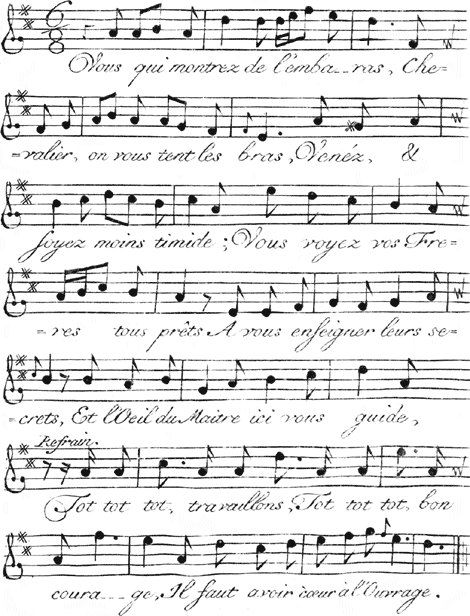 6
8
Vous qui montrez de l'emba--ras, Che=
=valier, on vous tent les bras, Venéz, &
soyez moins timide; Vous voyez vos Fre=
=res tous prêts A vous enseigner leurs se=
=crets, Et l'Oeil du Maitre ici vous guide,
Refrain.
Tot tot tot, travaillons; Tot tot tot, bon
coura---ge, Il faut avoir cœur à l'Ouvrage.